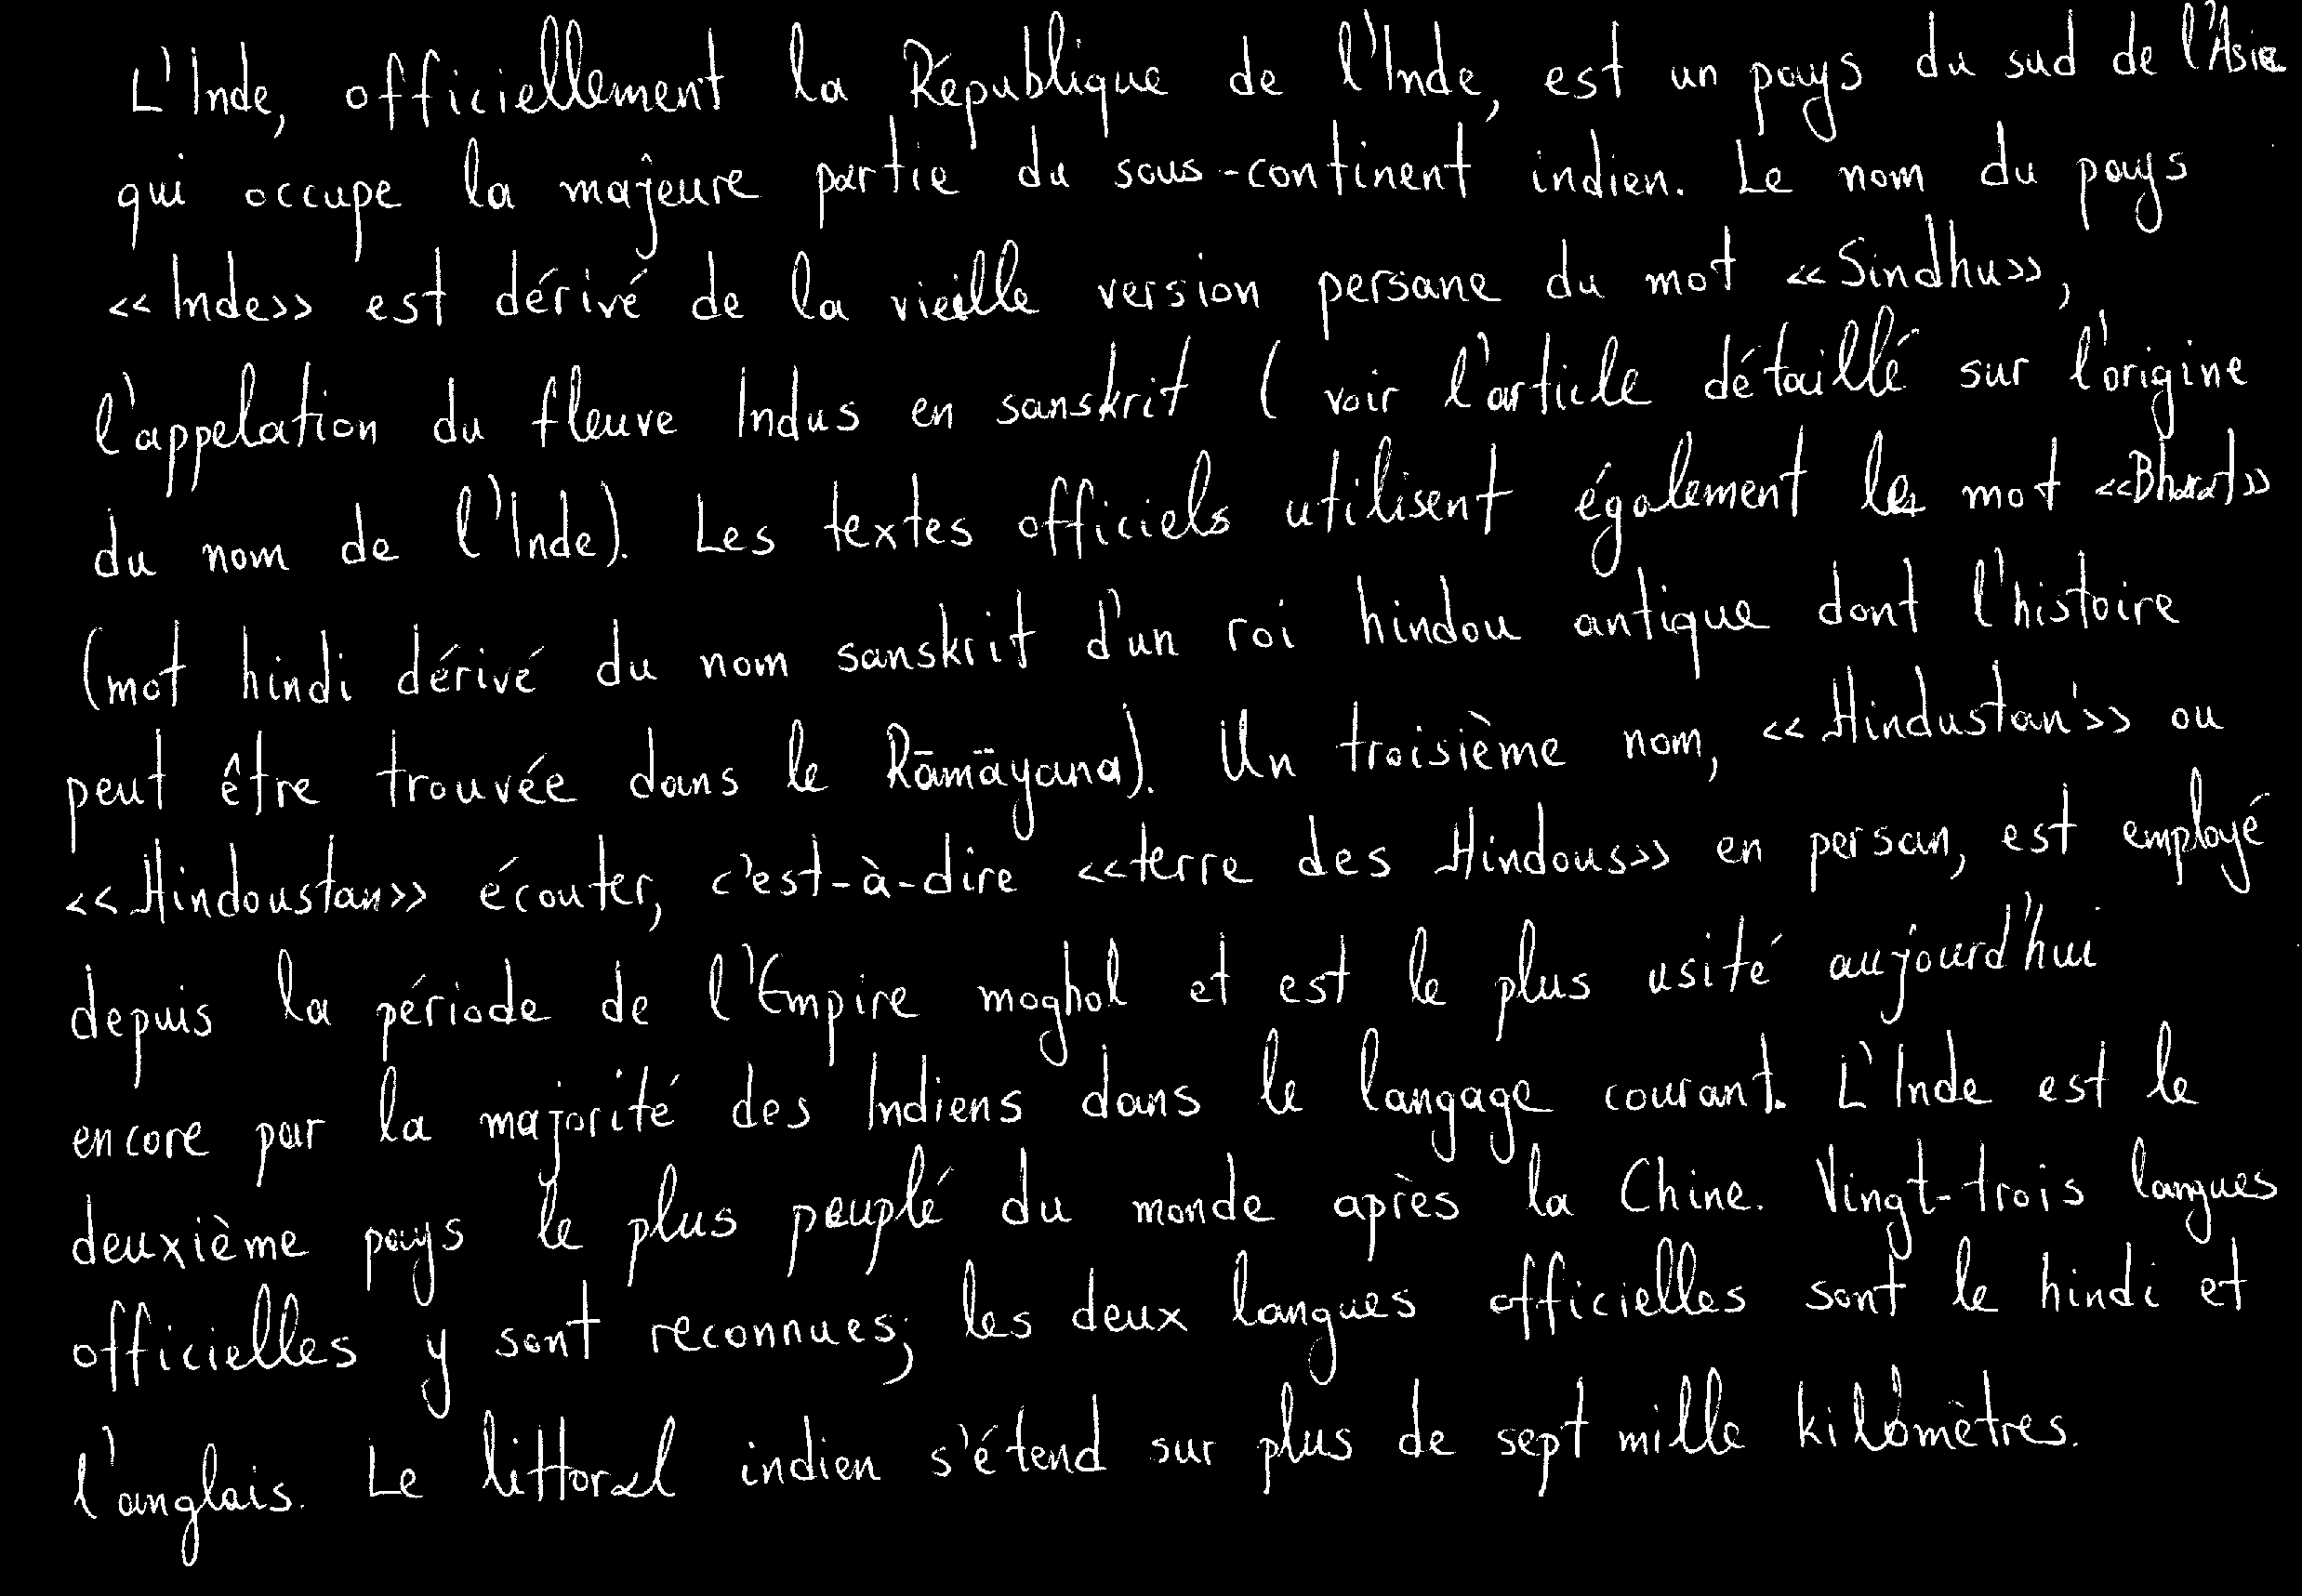 L'Inde, officiellement la République de l'Inde, est un pays du sud de l'Asie
qui occupe la majeure partie du sous-continent indien. Le nom du pays
«Inde» est dérivé de la vieille version persane du mot «Sindhu»,
l'appelation du fleuve Indus en sanskrit ( voir l'article détaillé sur l'origine
du nom de l'Inde). Les textes officiels utilisent également le mot «Bharat»
(mot hindi dérivé du nom sanskrit d'un roi hindou antique dont l'histoire
peut être trouvée dans le Rāmäyana). Un troisième nom, «Hindustan» ou
«Hindoustan» écouter, c'est-à-dire «terre des Hindous» en persan, est employé
depuis la période de l'Empire moghol et est le plus usité aujourd'hui
encore par la majorité des Indiens dans le langage courant. L'Inde est le
deuxième pays le plus peuplé du monde après la Chine. Vingt-trois langues
officielles y sont reconnues; les deux langues officielles sont le hindi et
l'anglais. Le littoral indien s'étend sur plus de sept mille kilomètres.